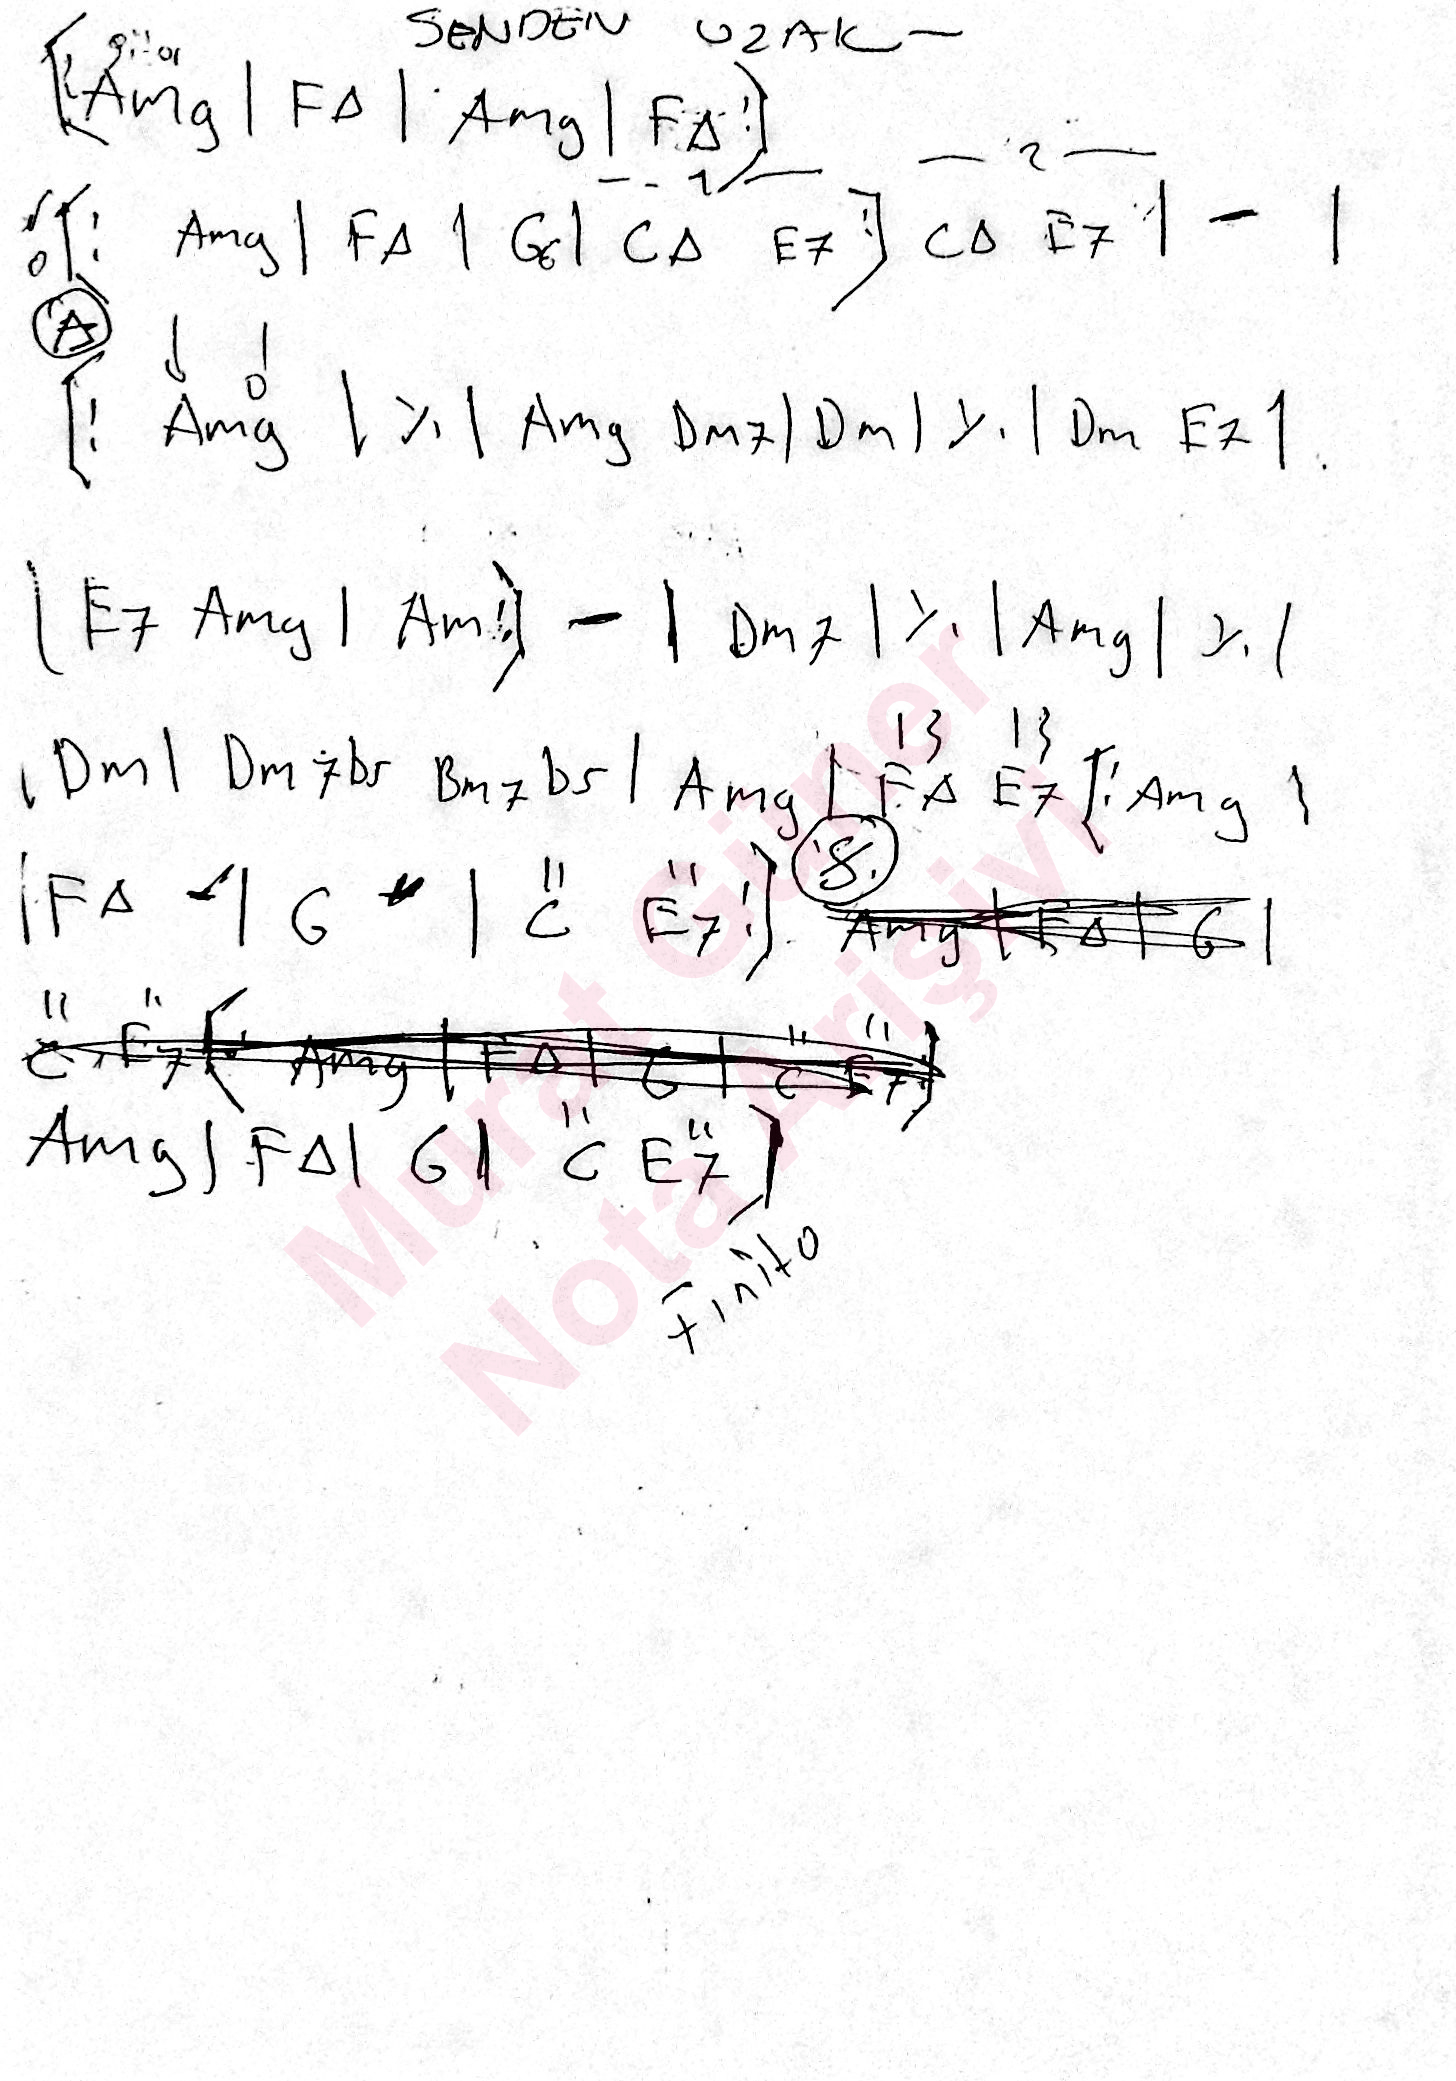 SENDEN UZAK –
gitar
[: Am9 | FΔ | Am9 | FΔ :]
– – 1 – – 2 –
[: Am9 | FΔ | G6 | CΔ E7 :] CΔ E7 | – |
A
[: Am9 | ٪ | Am9 Dm7 | Dm | ٪ | Dm E7 |
| E7 Am9 | Am :] – | Dm7 | ٪ | Am9 | ٪ |
13 13
| Dm | Dm7b5 Bm7b5 | Am9 | FΔ E7 [: Am9 |
| FΔ | G | C E7 :] 8.
Am9 | FΔ | G |
C E7 [: Am9 | FΔ | G | C E7 :]
Am9 | FΔ | G | C E7 ]
Finito
Murat Güner
Nota Arişivi